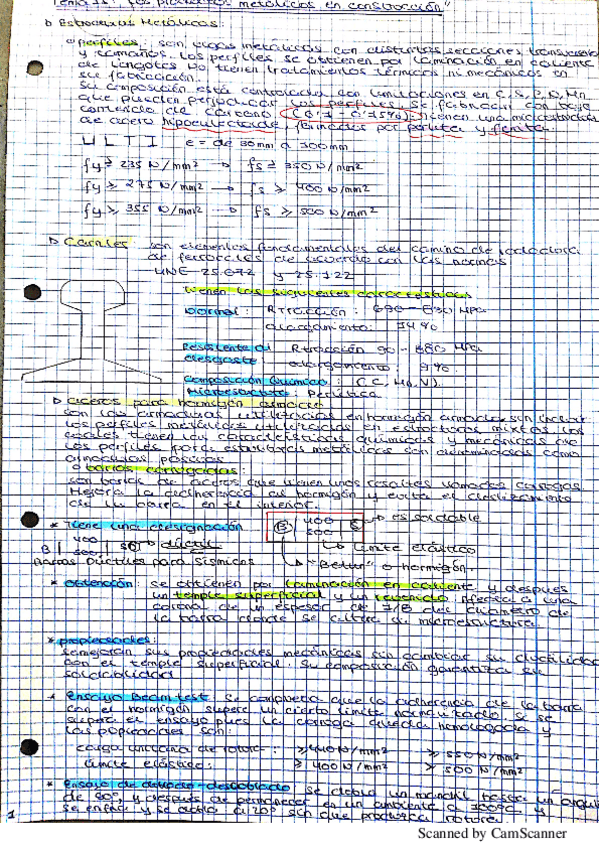 Tema 15: "Los productos metálicos en construcción"
▷ Estructuras Metálicas:
o perfiles: son vigas metálicas con distintas secciones transversales
y tamaños. Los perfiles se obtienen por laminación en caliente
de lingotes. No tienen tratamientos térmicos ni mecánicos en
su fabricación.
Su composición está controlada con limitaciones en C, S, P, N, Mn,
que pueden perjudicar. Los perfiles se fabrican con bajo
contenido de carbono tienen una microestructura
de acero hipoeutectoide, formados por perlita y ferrita.
U L T I e = de 30mm a 300mm
fy ≥ 235 N/mm² → fs ≥ 350 N/mm²
fy ≥ 275 N/mm² → fs ≥ 400 N/mm²
fy ≥ 355 N/mm² → fs ≥ 500 N/mm²
▷ Carriles son elementos fundamentales del camino de rodadura
de ferrocarriles de acuerdo con las normas
UNE-25.072 y 25.122
tienen las siguientes características
Normal: R tracción:
alargamiento: 14%
Resistente al R tracción
desgaste: alargamiento: 9%.
Composición Química:
Microestructura: Perlítica
▷ aceros para hormigón armado
son las armaduras utilizadas en hormigón armado, sin incluir
los perfiles metálicos utilizados en estructuras mixtas, los
cuales tienen las características químicas y mecánicas de
los perfiles para estructuras metálicas son denominados como
armaduras pasivas.
o barras corrugadas:
son barras de aceros que tienen unos resaltes llamados corrugas
Mejora la adherencia al hormigón y evita el deslizamiento
de la barra en el interior.
* Tiene una designación B 400 S → es soldable
400 500 → límite elástico
B 500 SD → dúctil → "Beton" o hormigón.
Barras Dúctiles para sísmicos
* obtención: se obtienen por laminación en caliente y después
un temple superficial y un revenido. Afecta a una
corona de un espesor de del diámetro de
la barra donde se altera su microestructura.
* propiedades:
se mejoran sus propiedades mecánicas sin cambiar su ductilidad
con el temple superficial. Su composición garantiza su
soldabilidad
* Ensayo Beam test: se comprueba que la adherencia de la barra
con el hormigón supere un cierto límite normalizado, si se
supera el ensayo pues la corruga queda homologada y
las propiedades son:
carga unitaria de rotura: ≥ 440 N/mm² ≥ 550 N/mm²
límite elástico: ≥ 400 N/mm² ≥ 500 N/mm²
* Ensayo de doblado-desdoblado: se dobla un mandril hasta un ángulo
de 90°, y después de permanecer en un ambiente a 100°C y
se enfría y se dobla a 20° sin que produzca rotura.
1
Scanned by CamScanner